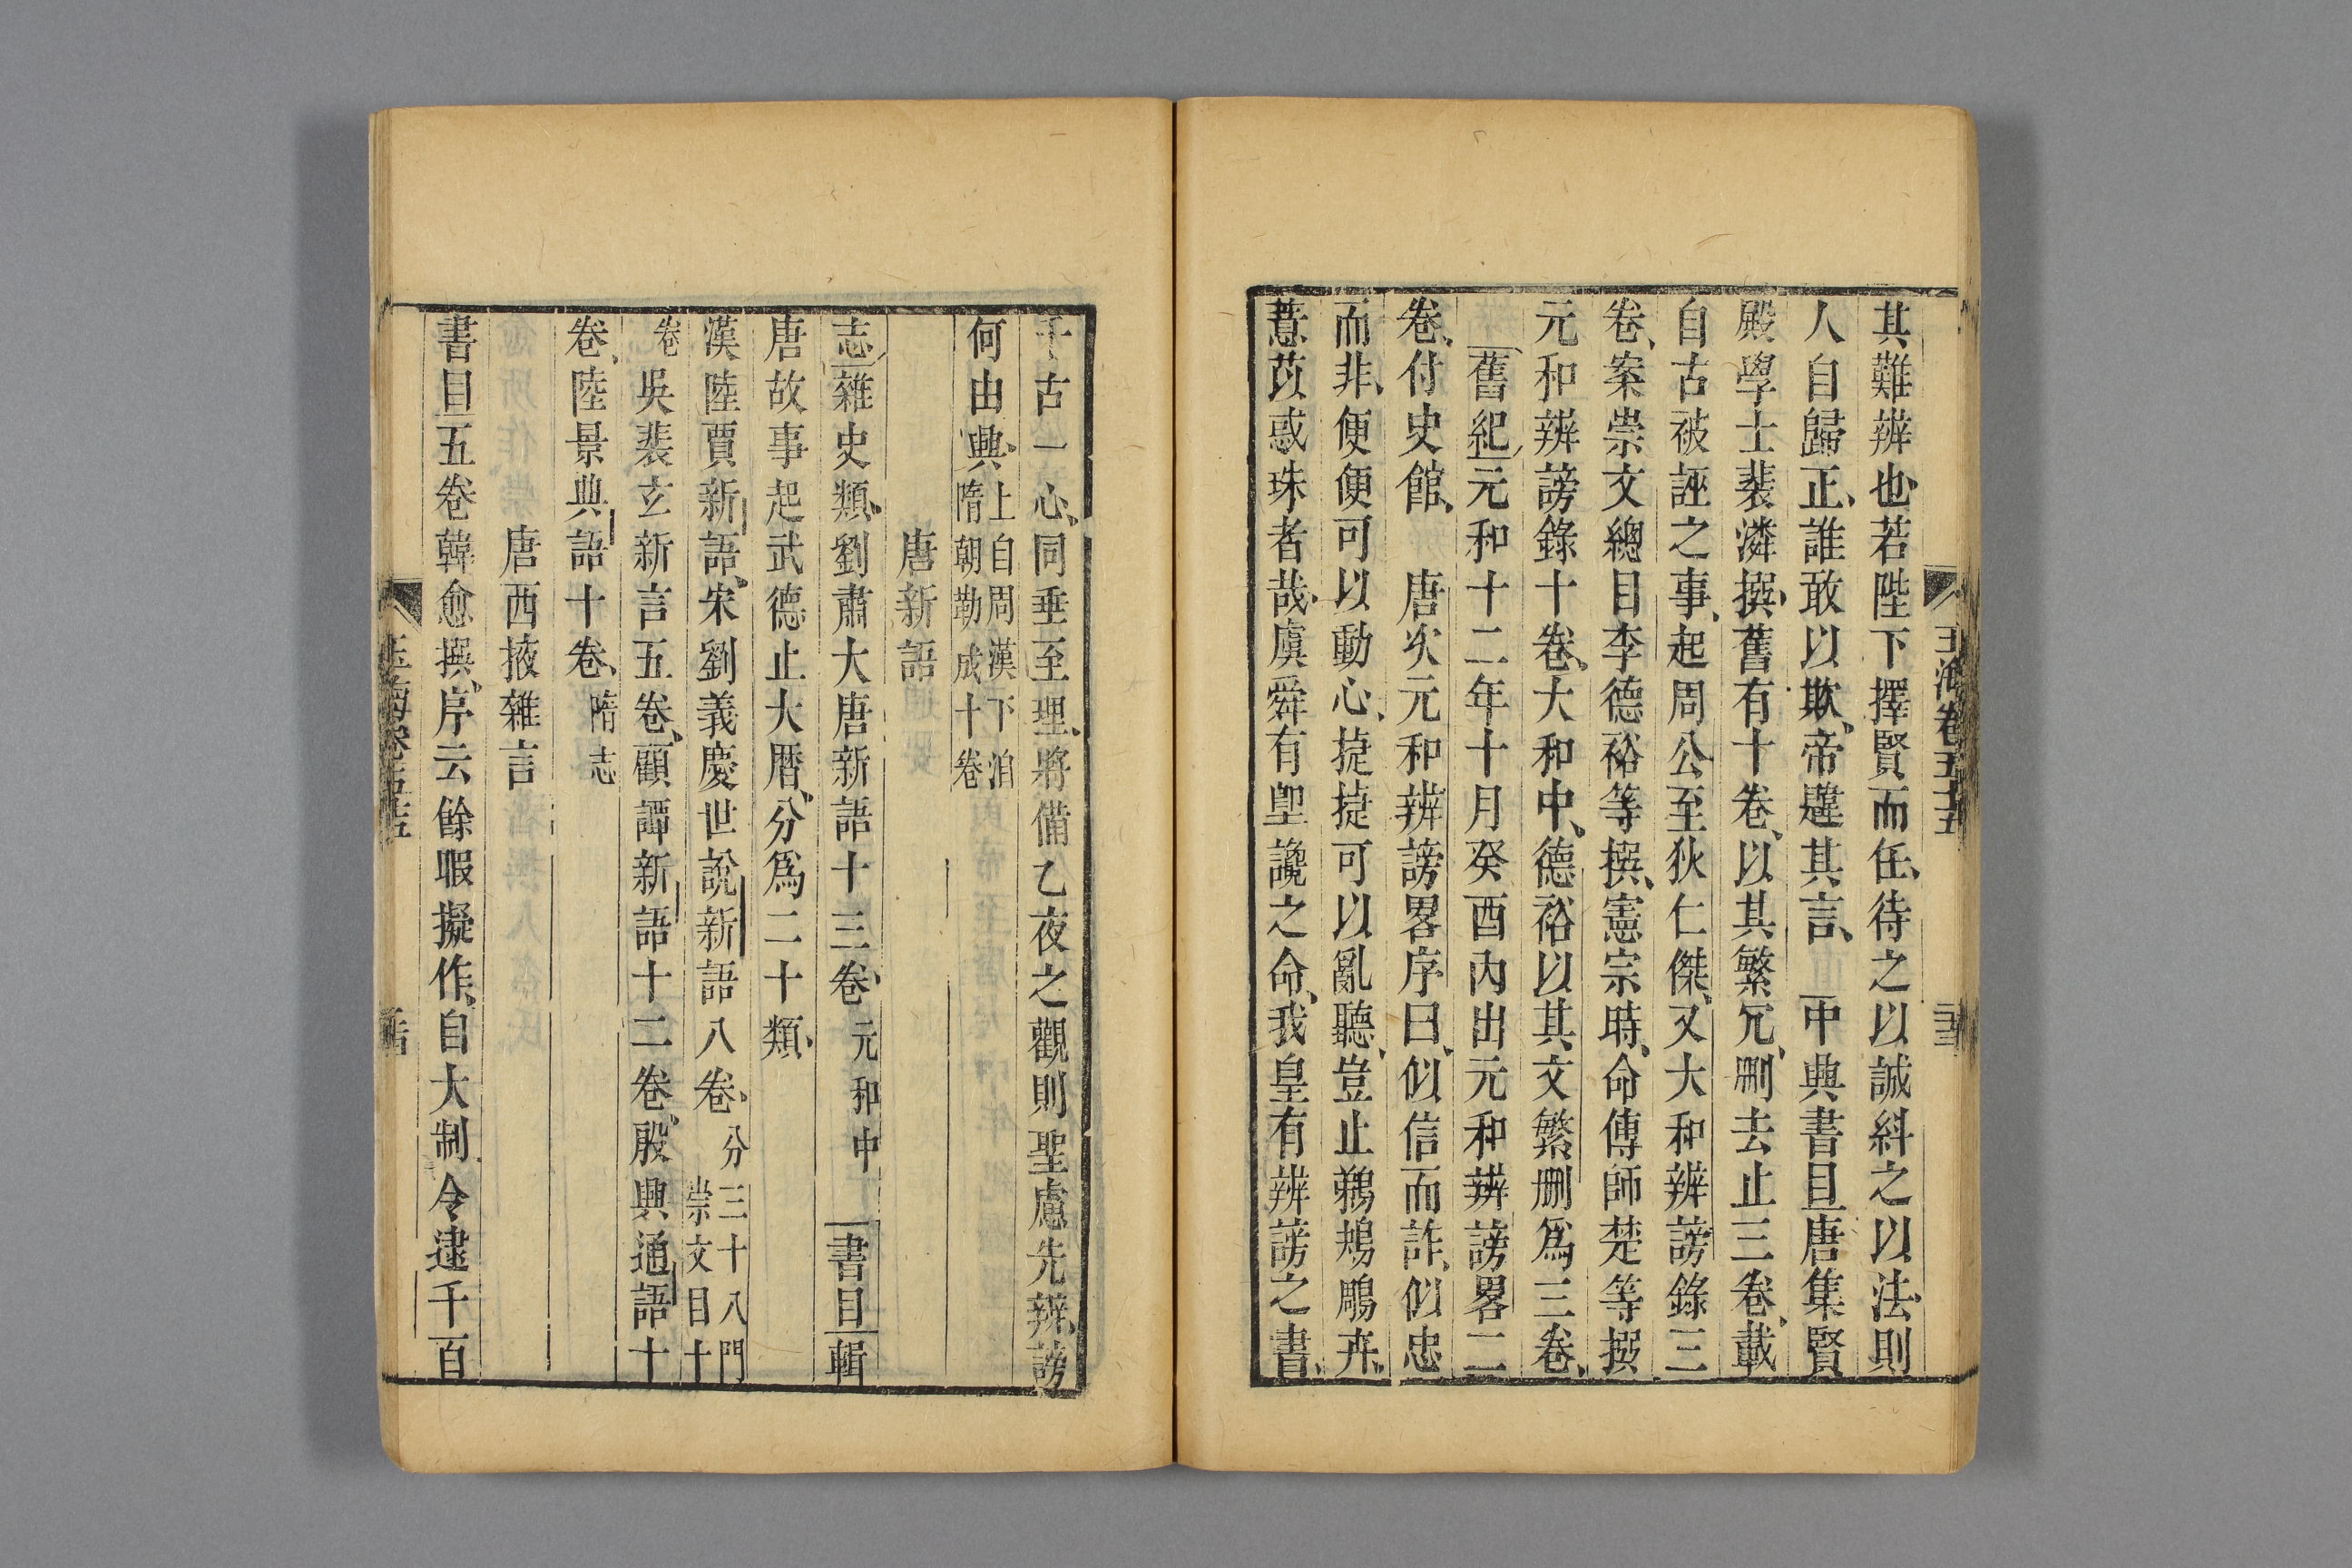 其難辨也若陛下擇賢而任、待之以誠糾之以法則
人自歸正、誰敢以欺、帝韙其言、中典書目唐集賢
殿學士裴潾撰舊有十卷、以其繁冗、刪去止三卷、載
自古被誣之事、起周公至狄仁傑、又大和辨謗錄三
卷、案崇文總目李德裕等撰、憲宗時、命傳師楚等撰
元和辨謗錄十卷、大和中、德裕以其文繁刪爲三卷、
舊紀元和十二年十月癸酉內出元和辨謗畧二
卷、付史館、唐次元和辨謗畧序曰、似信而詐、似忠
而非、便便可以動心、捷捷可以亂聽、豈止鵜鴂雕卉、
薏苡惑珠者哉、虞舜有堲讒之命、我皇有辨謗之書、
千古一心、同垂至理、將備乙夜之觀則聖慮先辨、謗
何由興、上自周漢下洎
隋朝勒成十卷
唐新語
志雜史類、劉肅大唐新語十三卷、元和中 書目輯
唐故事起武德止大曆、分爲二十類、
漢陸賈新語、宋劉義慶世說新語八卷、分三十八門
崇文目十
卷吳裴玄新言五卷、顧譚新語十二卷、殷興通語十
卷、陸景典語十卷、隋志
唐西掖雜言
書目五卷韓愈撰、序云餘暇擬作、自大制令逮千百
玉海卷五十五